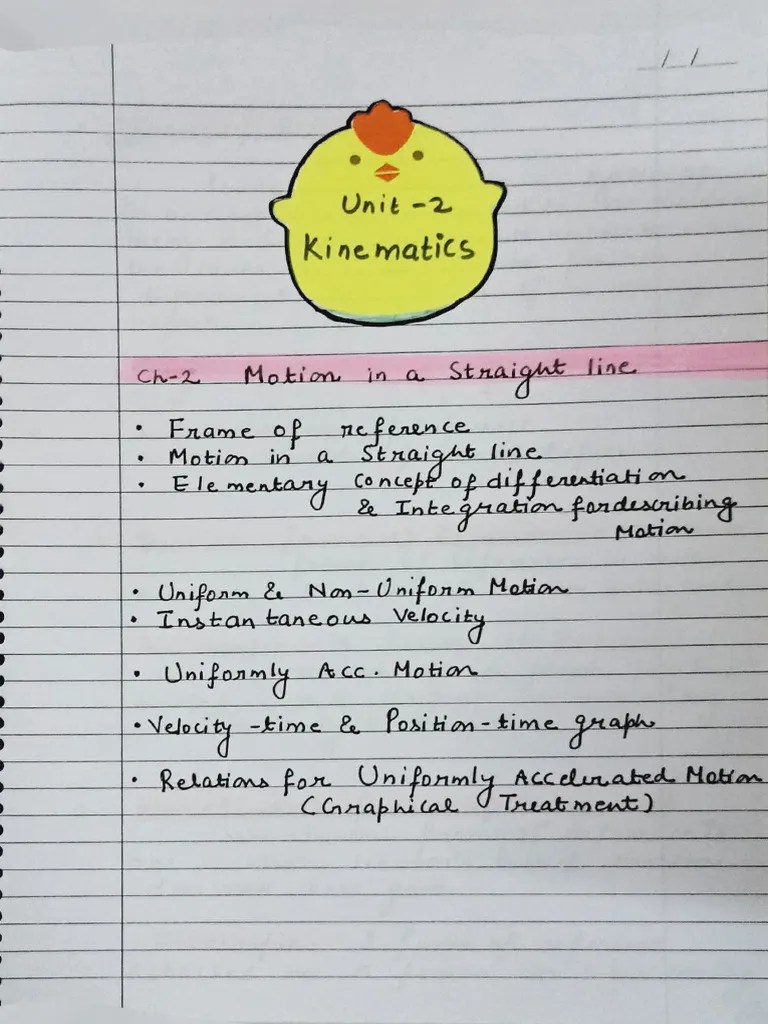 _/_/_
Unit -2
Kinematics
Ch-2 Motion in a Straight line
• Frame of reference
• Motion in a Straight line
• Elementary Concept of differentiation
& Integration for describing
Motion
• Uniform & Non-Uniform Motion
• Instantaneous Velocity
• Uniformly Acc. Motion
• Velocity -time & Position-time graph
• Relations for Uniformly Accelerated Motion
(Graphical Treatment)